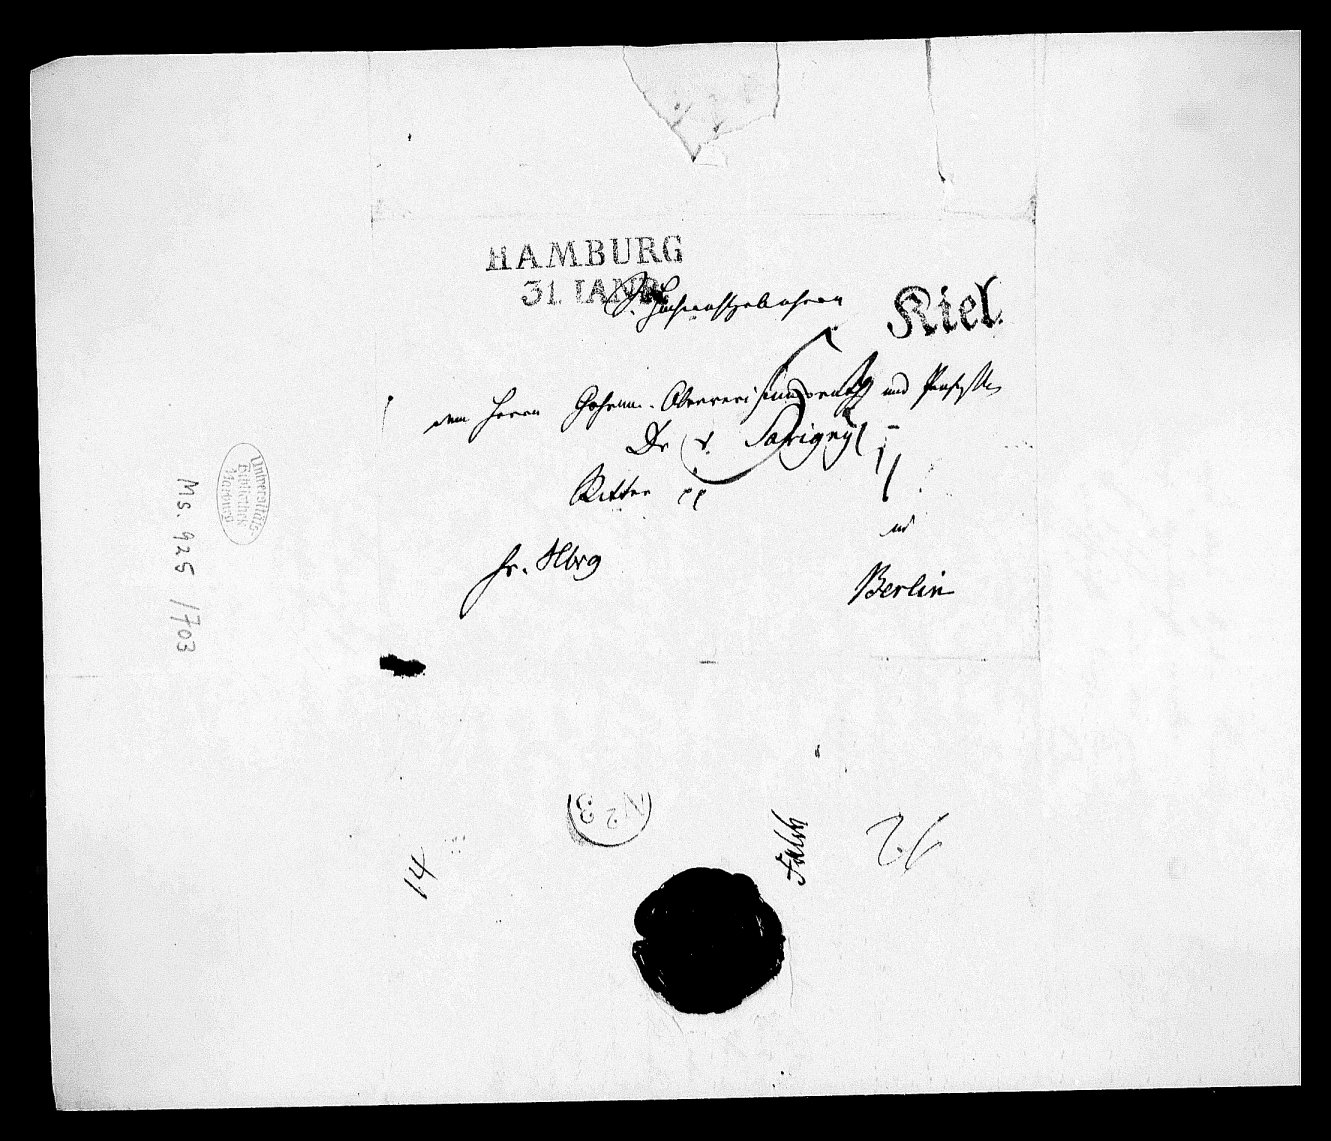 HAMBURG
31. IANR.
Kiel.
Sr. Hochwohlgebohren
dem Herrn Geheim. Oberrevisionsrath und Professor
Dr v. Savigny
Ritter pp
in
fr. Hbrg
Berlin
Universitäts
Bibliothek
Marburg
Ms. 925 /703
N 3
14
Falck